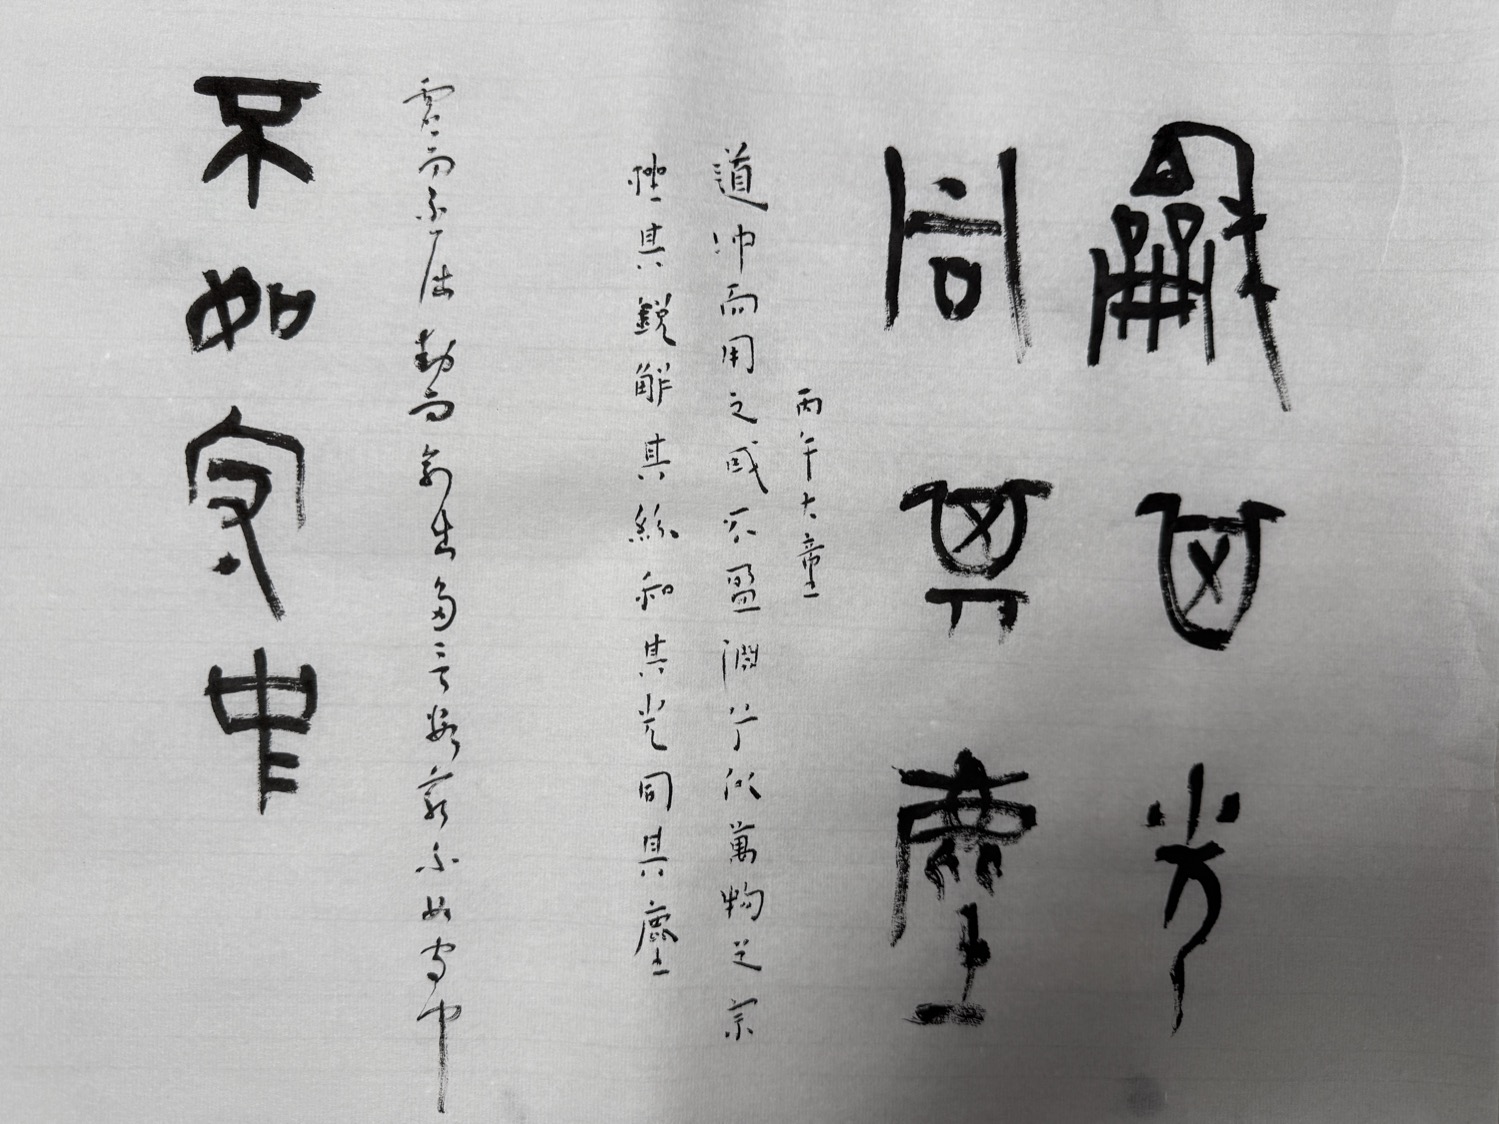 龢其光
同其塵
丙午大童
道沖而用之或不盈淵兮似萬物之宗
挫其銳解其紛和其光同其塵
虛而不屈動而俞出多言數窮不如守中
不如守中